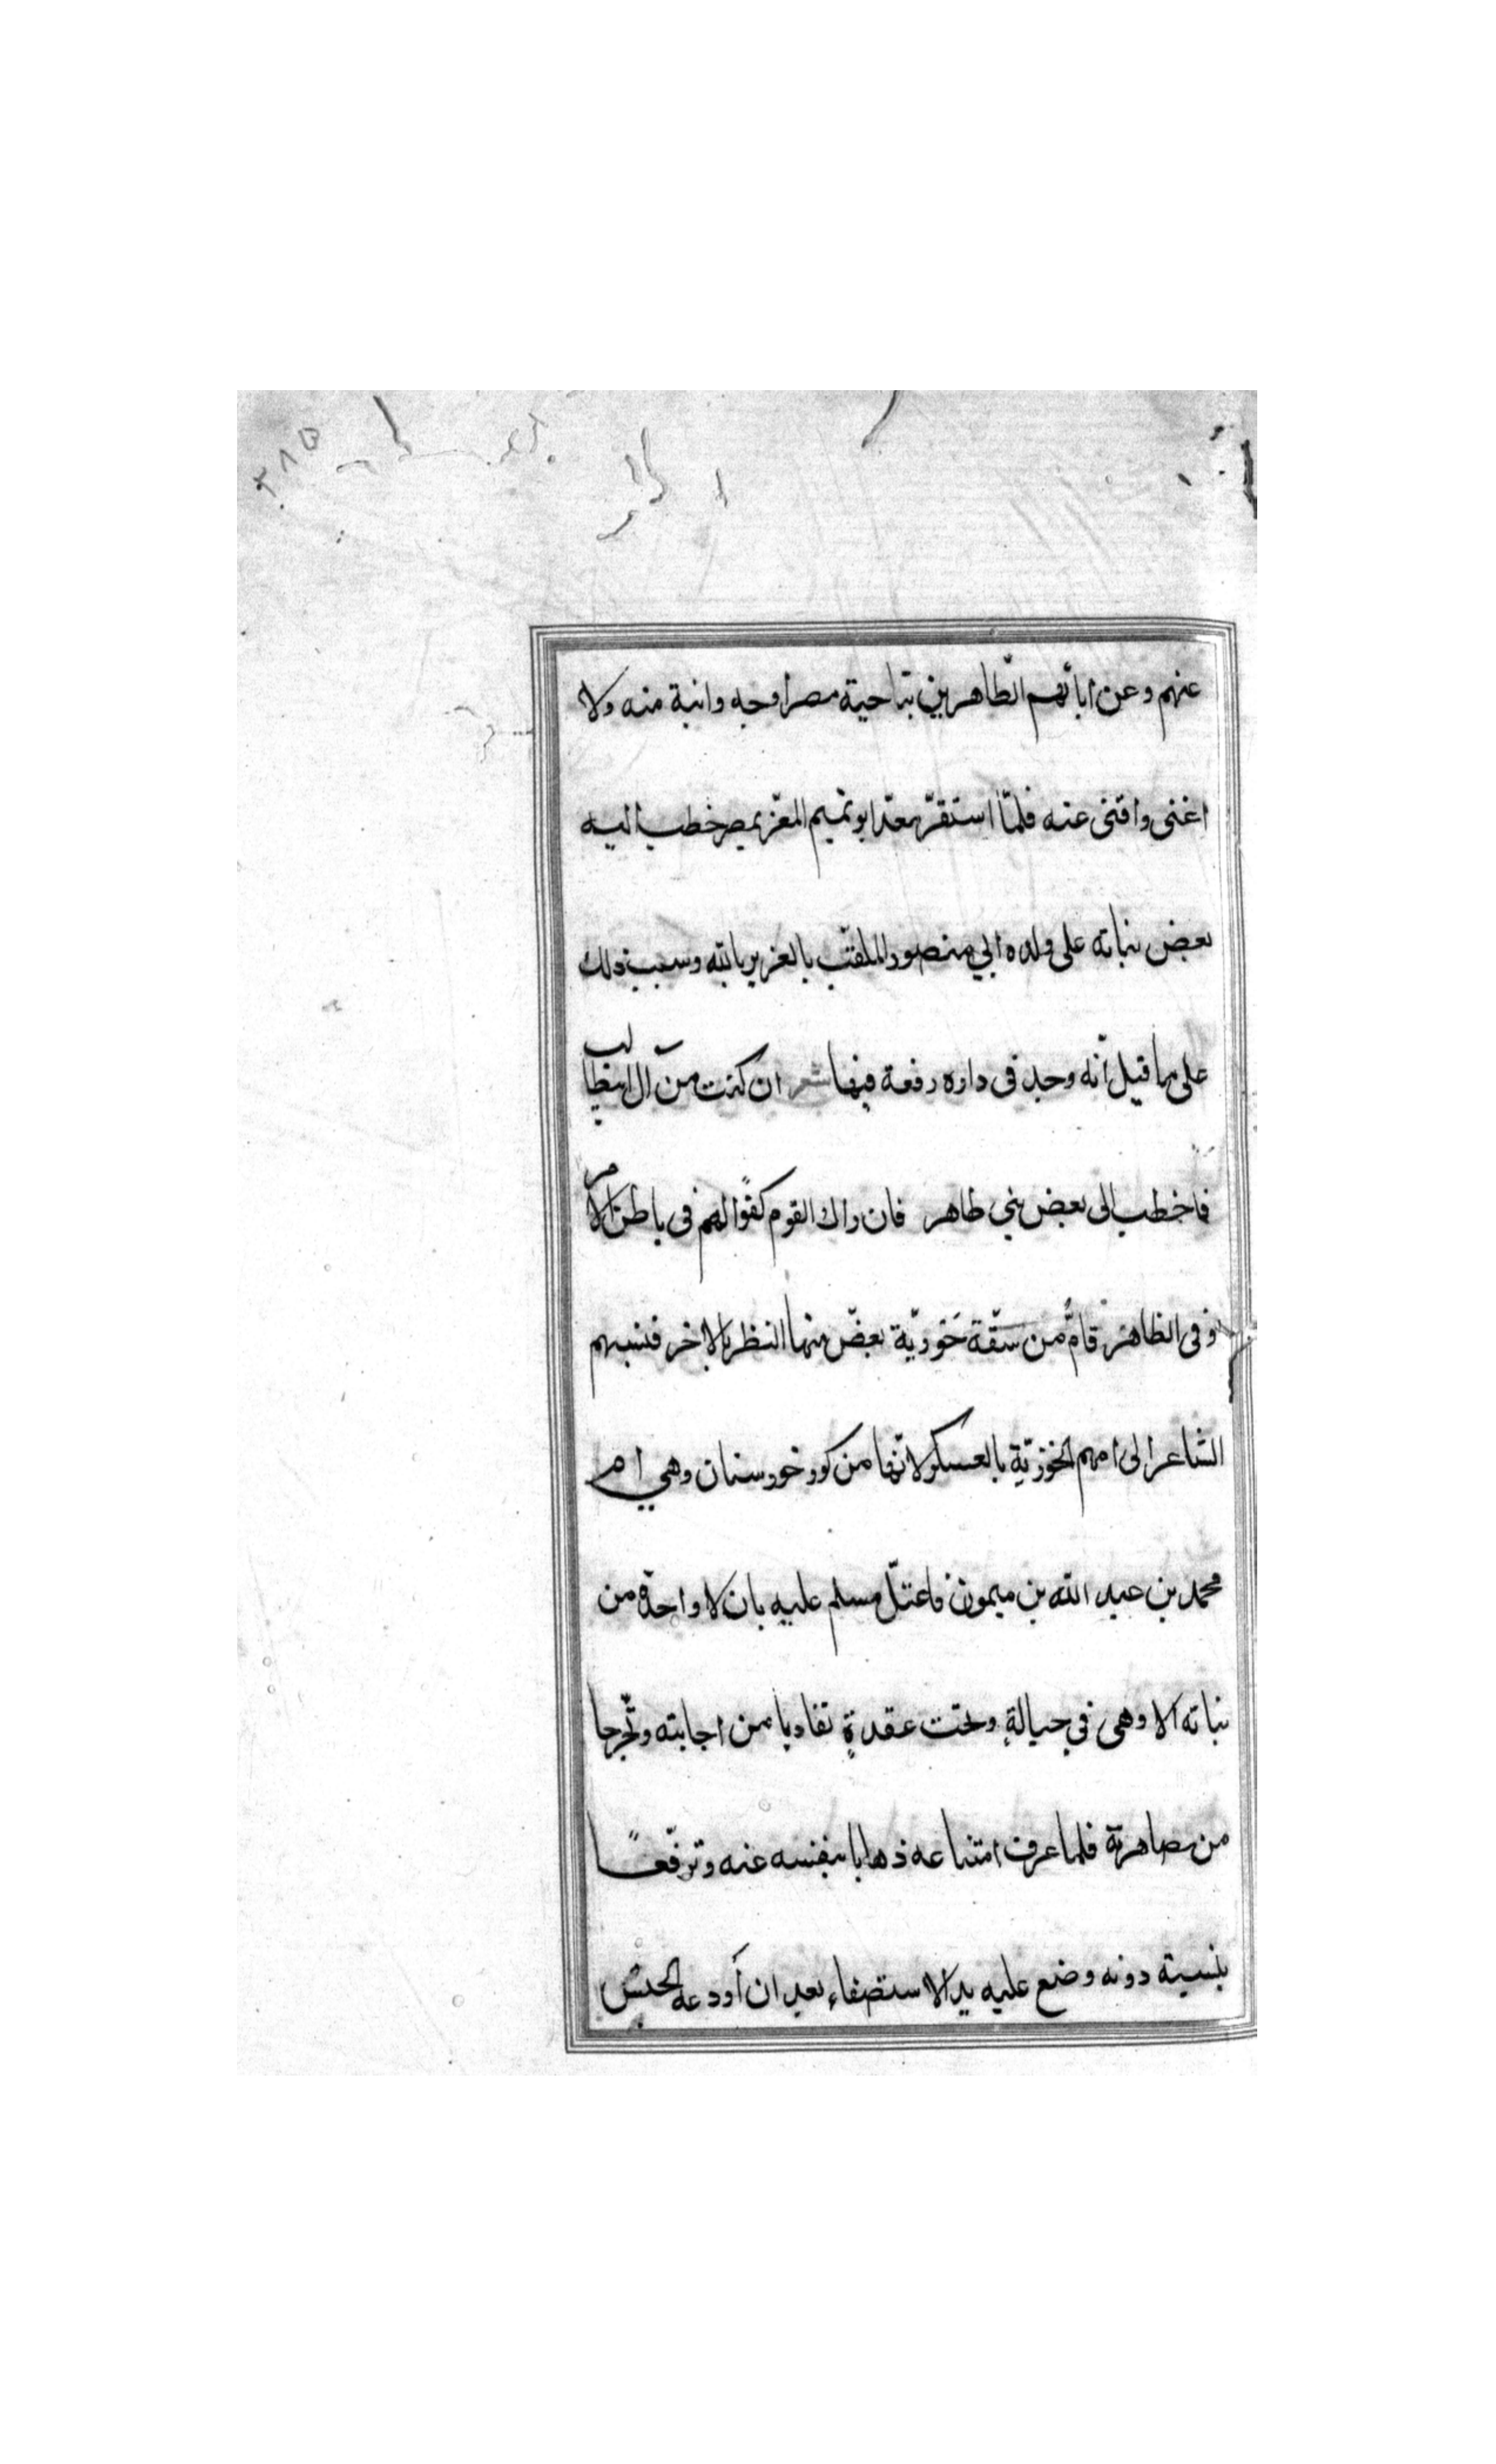 عنهم وعن ابائهم الطّاهرين بناحية مصر اوجه وانبة منه ولا
اغنى واقنى عنه فلمّا استقرّ معدّ ابو تميم المعزّ بمصر خطب اليه
بعض بناته على ولده ابي منصور الملقّب بالعزيز بالله وسبب ذلك
على ما قيل أنّه وجد فى داره رقعة فيها شعر ان كنت من آل ابيطالب
فاخطب الى بعض بني طاهر فان راك القوم كفوًا لهم فى باطن الامر
وفى الظاهر قامُّ من سقّة خوزيّة بعضّ منها النظر بالاخر فنسبهم
الشاعر الى امهم الخوزيّة بالعسكر لانّها من كور خورستان وهي ام
محمد بن عبد الله بن ميمون فاعتلّ مسلم عليه بان لا واحدة من
بناته الا وهى في حبالةٍ وتحت عقدةٍ تفاديا من اجابته وتحّرجا
من مصاهرته فلما عرف امتناعه ذهابا بنفسه عنه وترفّعًا
بنسبته دونه وضع عليه يد الاستصفاء بعد ان أودعه الحبس